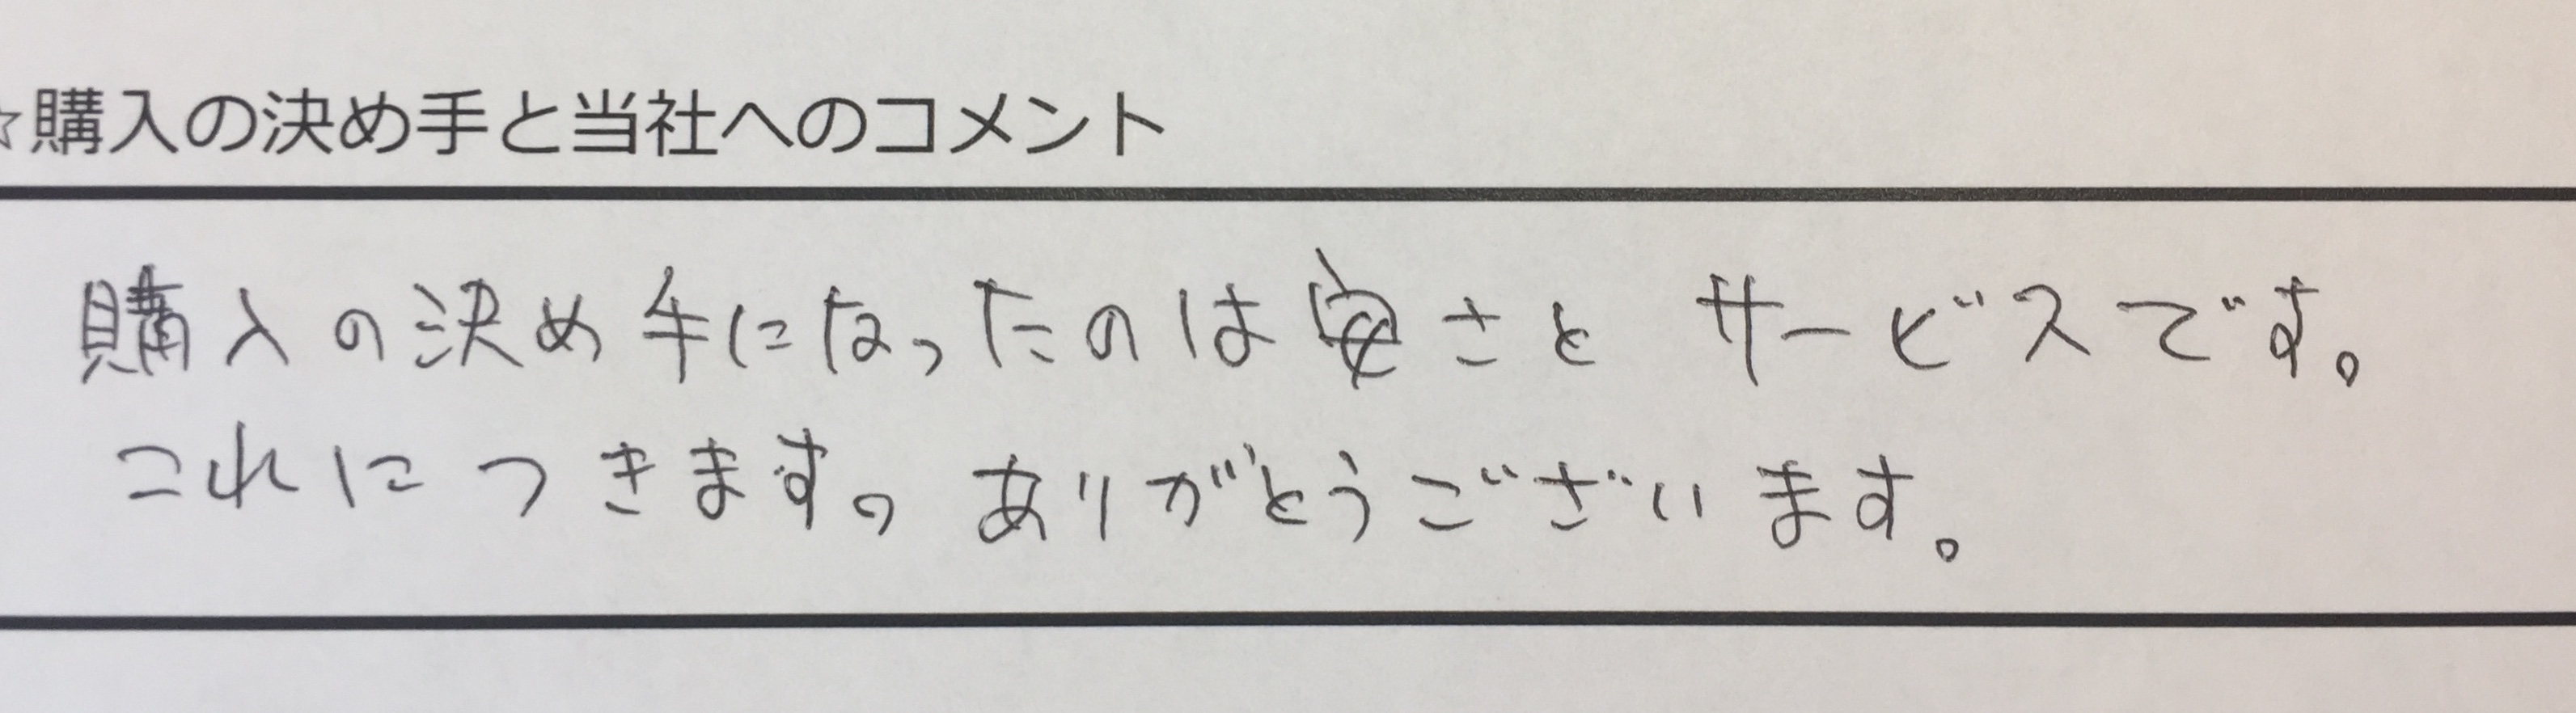 ☆購入の決め手と当社へのコメント
購入の決め手になったのは安さと サービスです。
これにつきます。ありがとうございます。